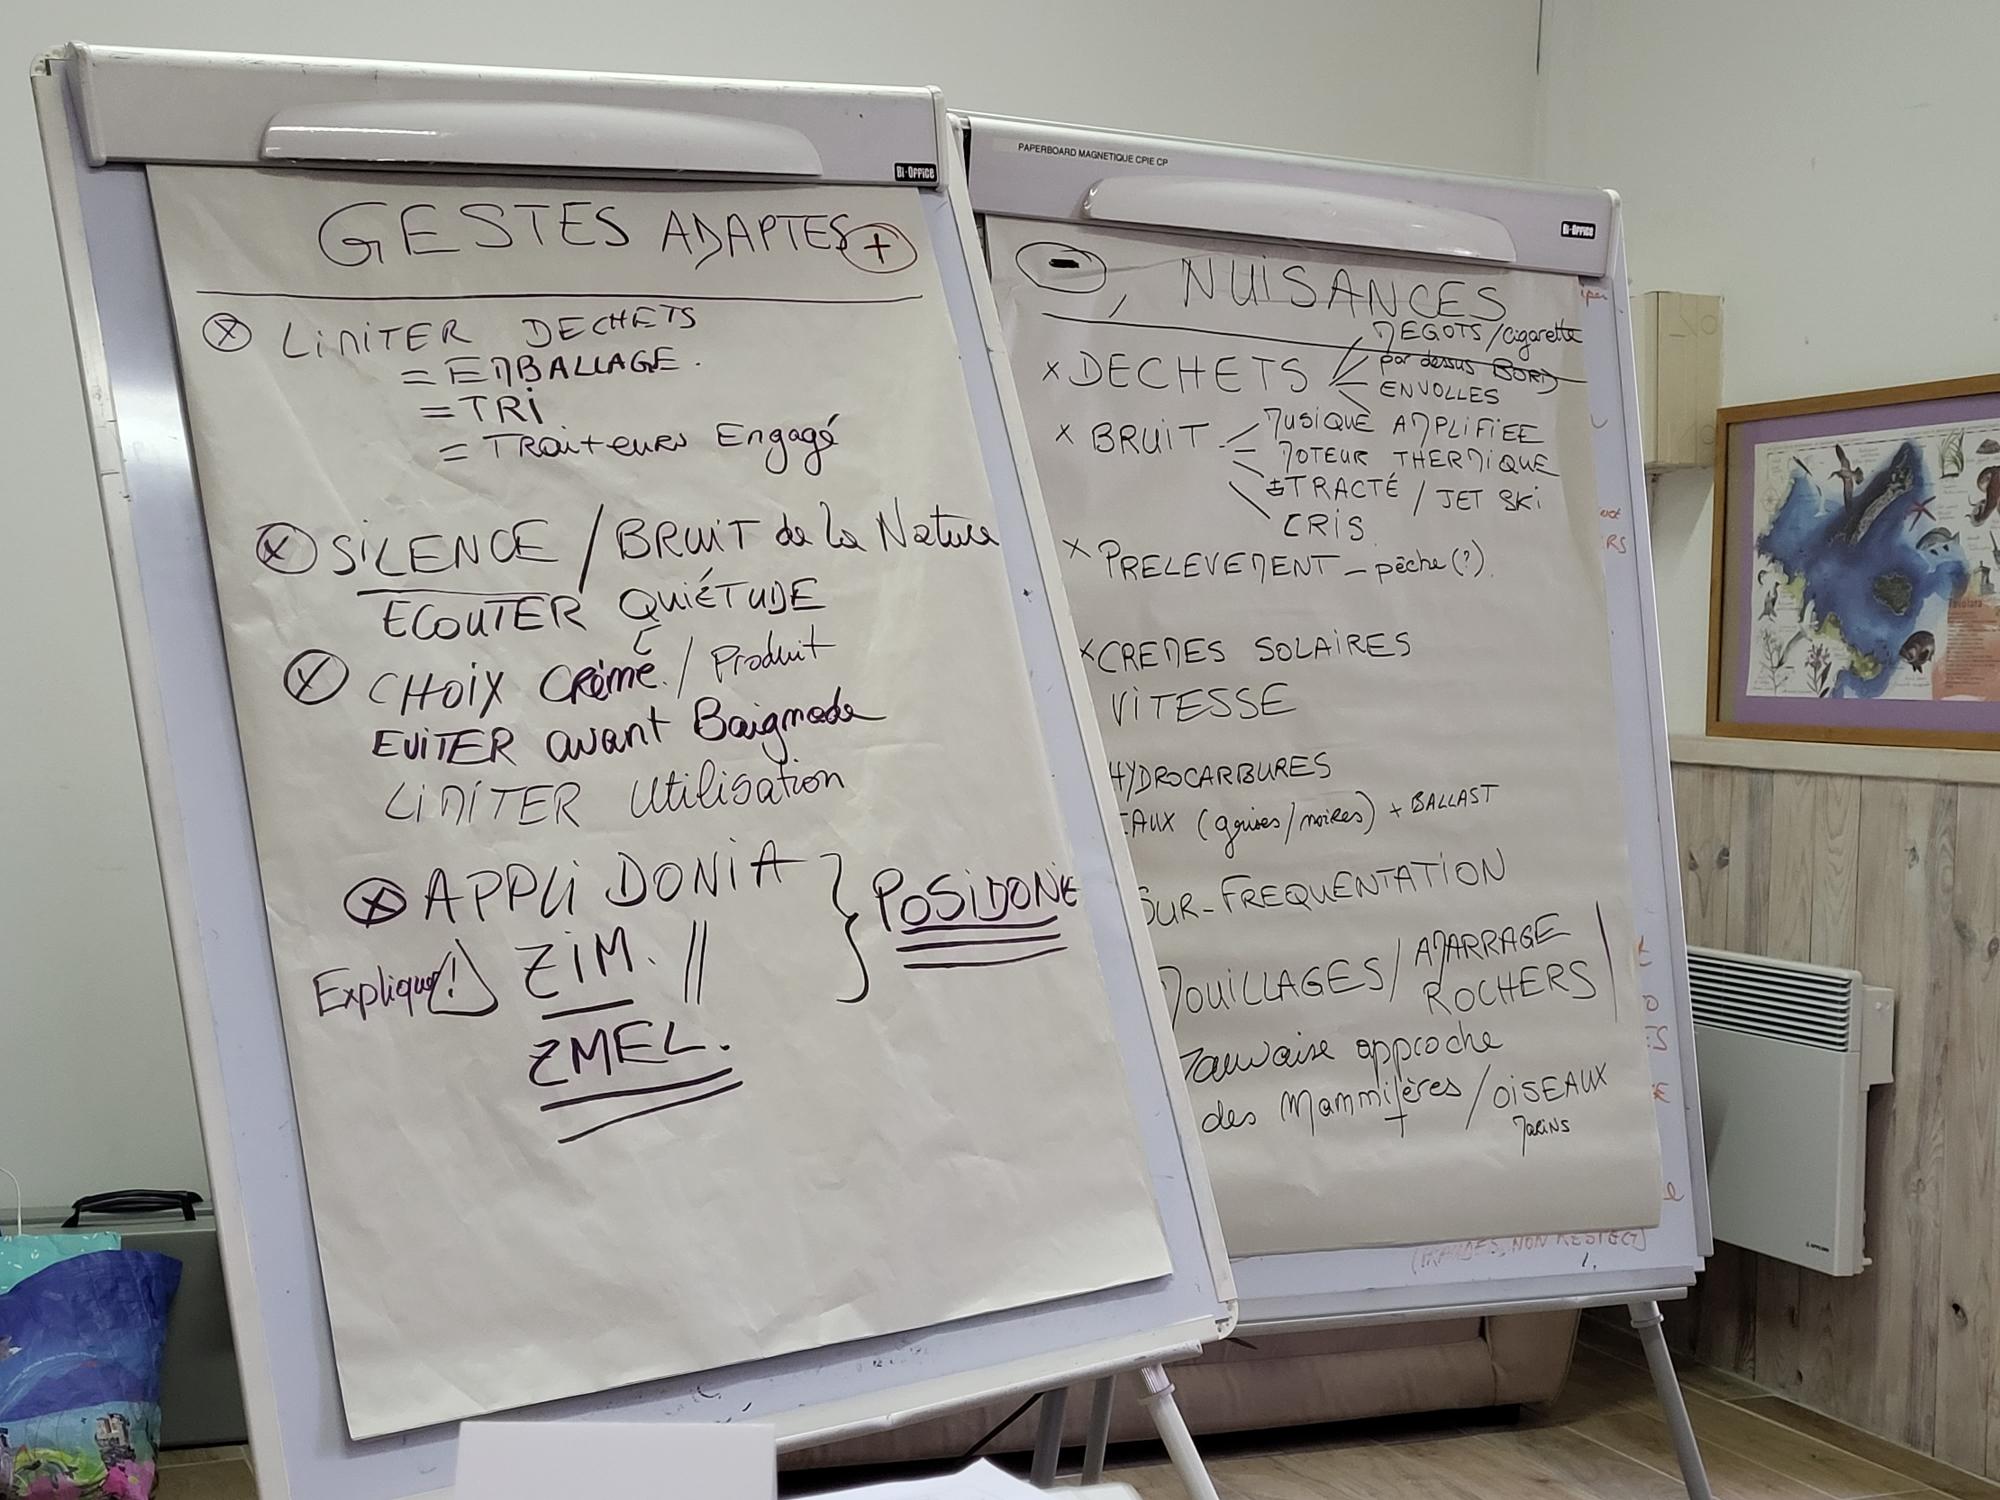 Bi-Office
GESTES ADAPTES +
LIMITER DECHETS
= EMBALLAGE.
= TRI
= TRaiteurs Engagé
SILENCE / BRUIT de la Nature
ECOUTER QUIÉTUDE
CHOIX Crème / Produit
EVITER avant Baignade
LIMITER Utilisation
APPLI DONIA } POSIDONIE
Explique ! ZIM. //
ZMEL.
PAPERBOARD MAGNETIQUE CPIE CP
Bi-Office
- , NUISANCES
x DECHETS MEGOTS / cigarette
par dessus BORD
ENVOLLES
x BRUIT MUSIQUE AMPLIFIEE
MOTEUR THERMIQUE
± TRACTÉ / JET SKI
CRIS
x PRELEVEMENT - pêche (?).
x CREMES SOLAIRES
VITESSE
HYDROCARBURES
EAUX (grises / noires) + BALLAST
SUR-FREQUENTATION
MOUILLAGES / AMARRAGE
ROCHERS
Mauvaise approche
des Mammifères / OISEAUX
Marins
NON RESPECT)